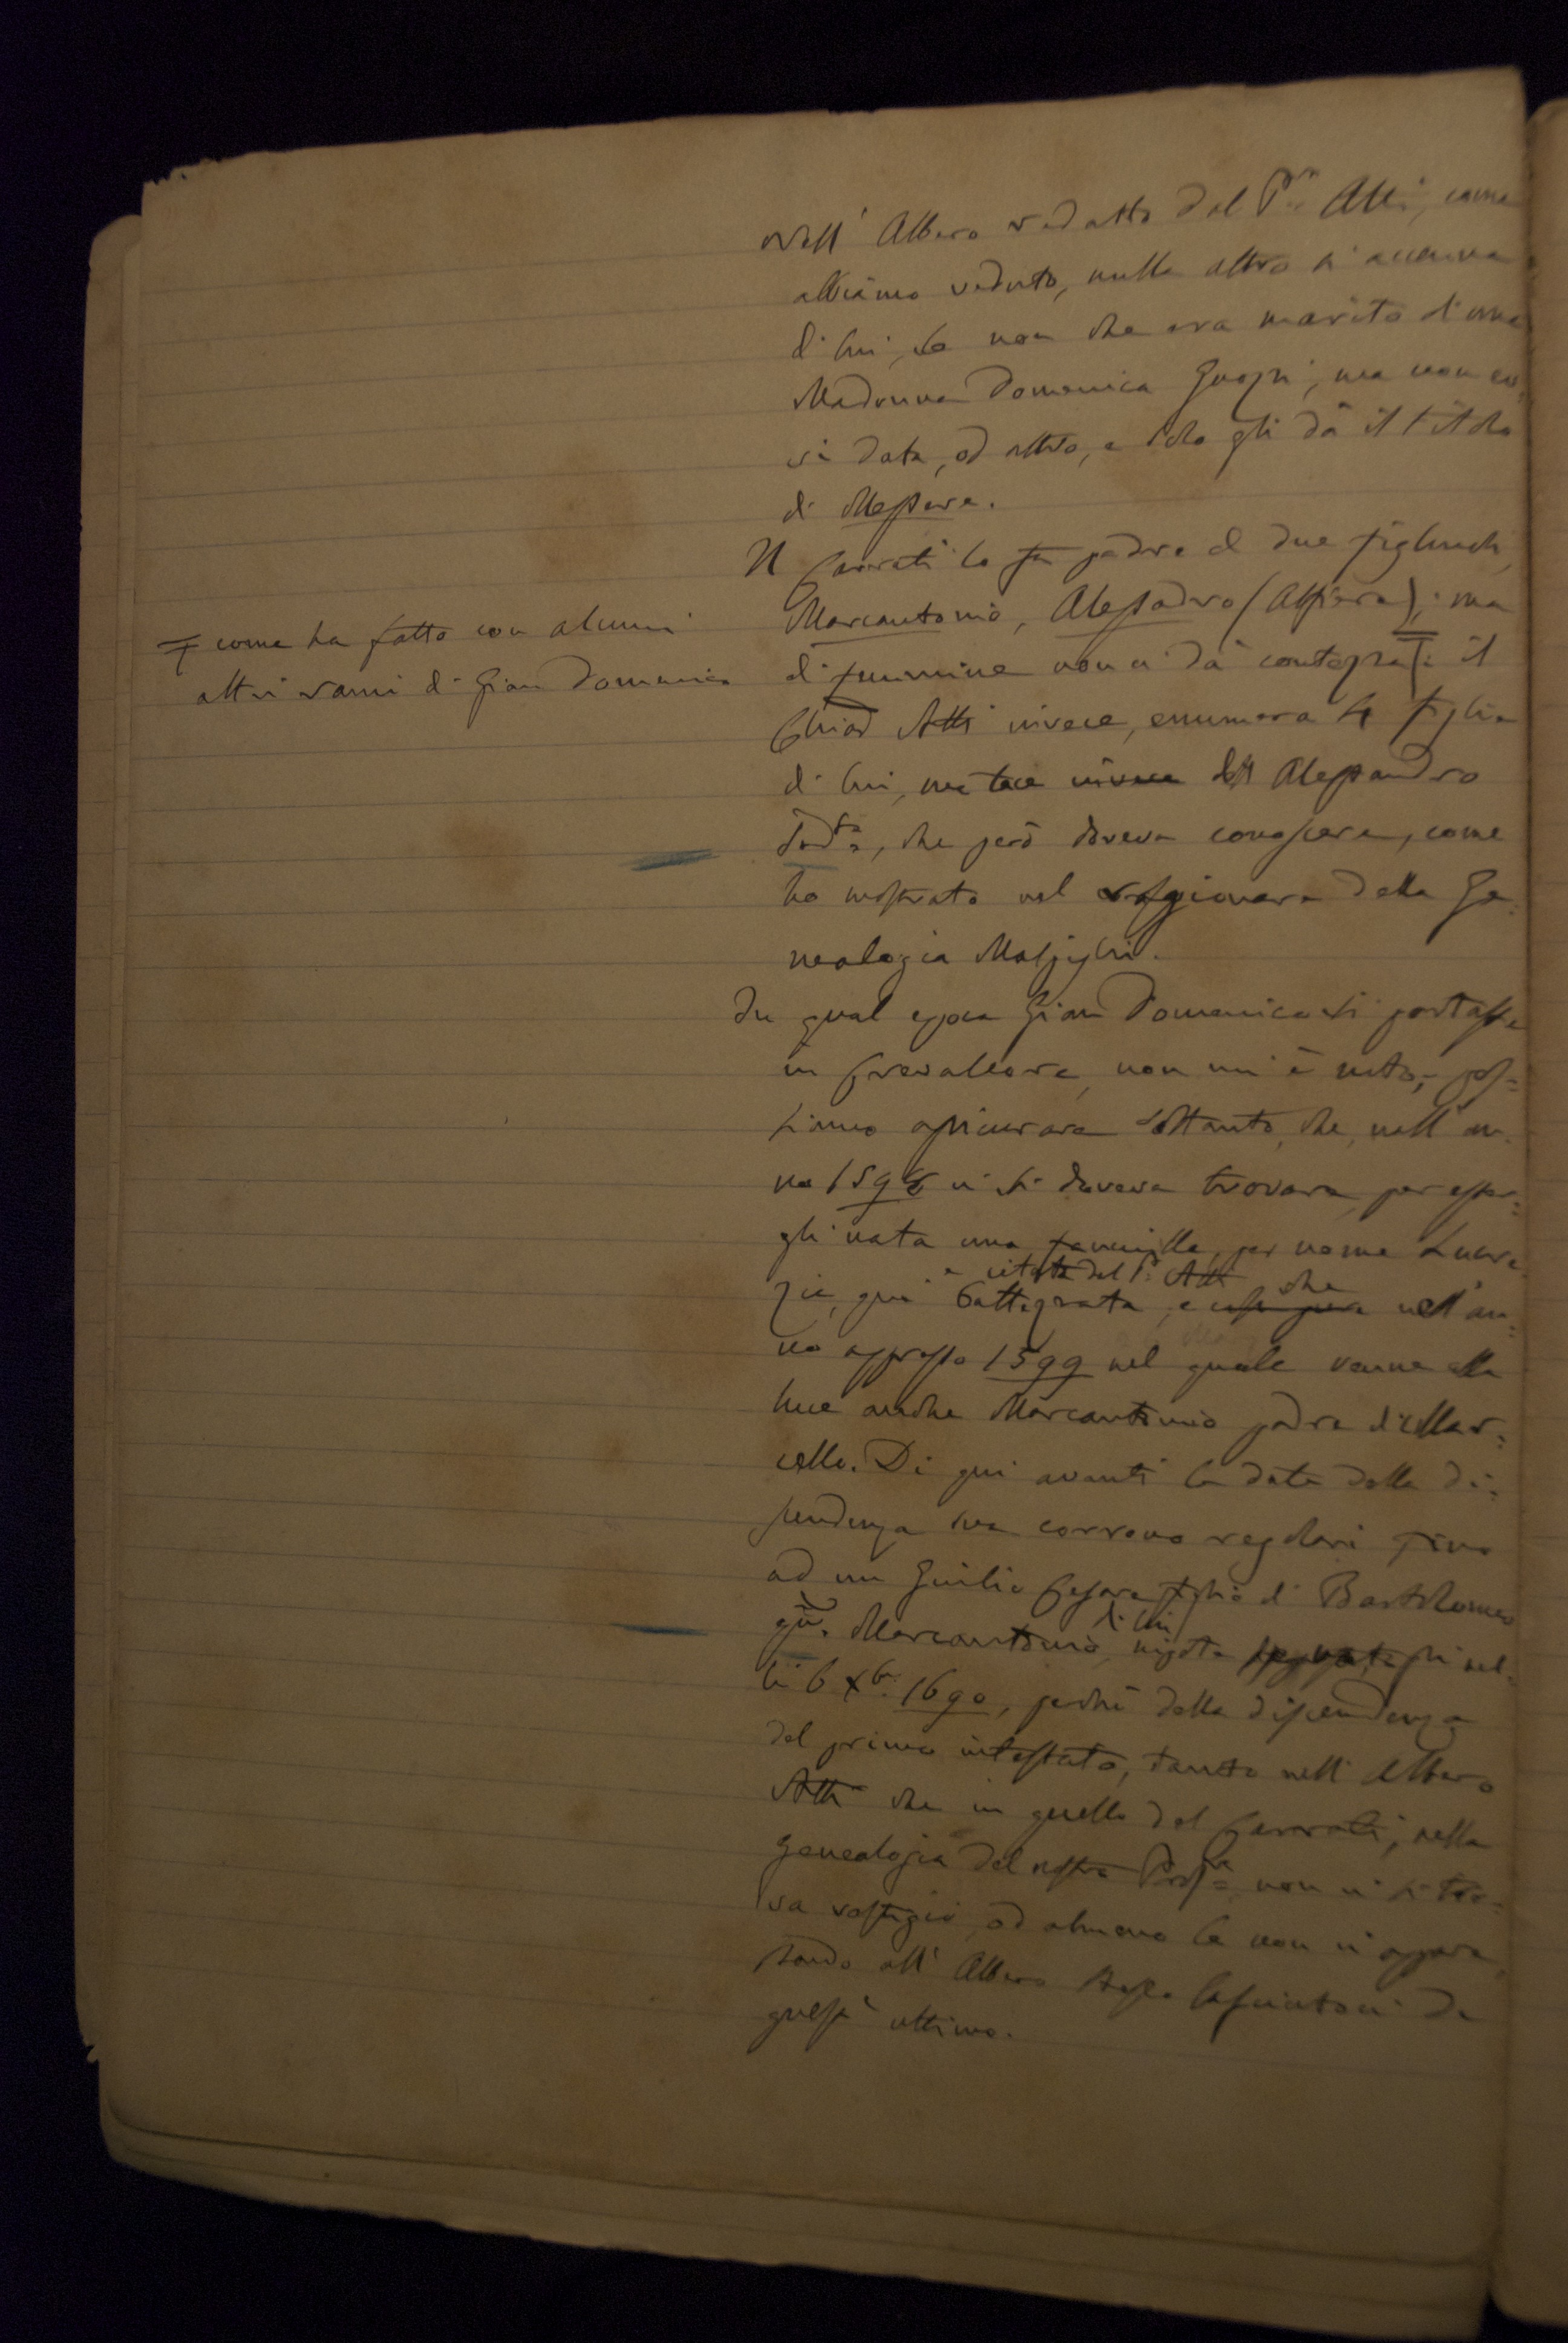 Nell' Albero redatto dal P.re Atti, come
abbiamo veduto, nulla altro si accenna
di lui, se non che era marito d'una
Madonna Domenica Guozzi, ma non ev=
vi data, od altro, e solo gli dà il titolo
di Messere.
Il Carrati lo fa padre di due figliuoli,
Marcantonio, Alessandro (Alfiere); ma
di femmine non ci dà contezza ╤: il
Chiar. Atti invece, enumera 4 figlie
di lui, ma tace invece dell' Alessandro
sud.to, che però doveva conoscere, come
ho mostrato nel ragionare della Ge=
nealogia Malpighi.
╤ come ha fatto con alcuni
altri rami di Gian Domenico
In qual epoca Gian Domenico si portasse
in Crevalcore, non mi è noto; pos=
siamo assicurare soltanto, che, nell' an=
no 1598 ci si doveva trovare, per esser=
gli nata una fanciulla, per nome Lucre=
e citata dal P. Atti che
zia, qui battezzata, e nell' an=
no appresso 1599 nel quale venne alla
luce anche Marcantonio padre di Mar=
cello. Di qui avanti le date della di=
scendenza sua corrono regolari fino
ad un Giulio Cesare figlio di Bartolomeo
di lui
qm. Marcantonio, nipote nel
li 6 Xbr. 1690, perchè della discendenza
del primo intestato, tanto nell' Albero
Atti che in quello del Carrati, nella
genealogia del nostro non vi si tro=
va vestigio, od almeno la non vi appare,
stando all' Albero stesso lasciatoci da
quest' ultimo.